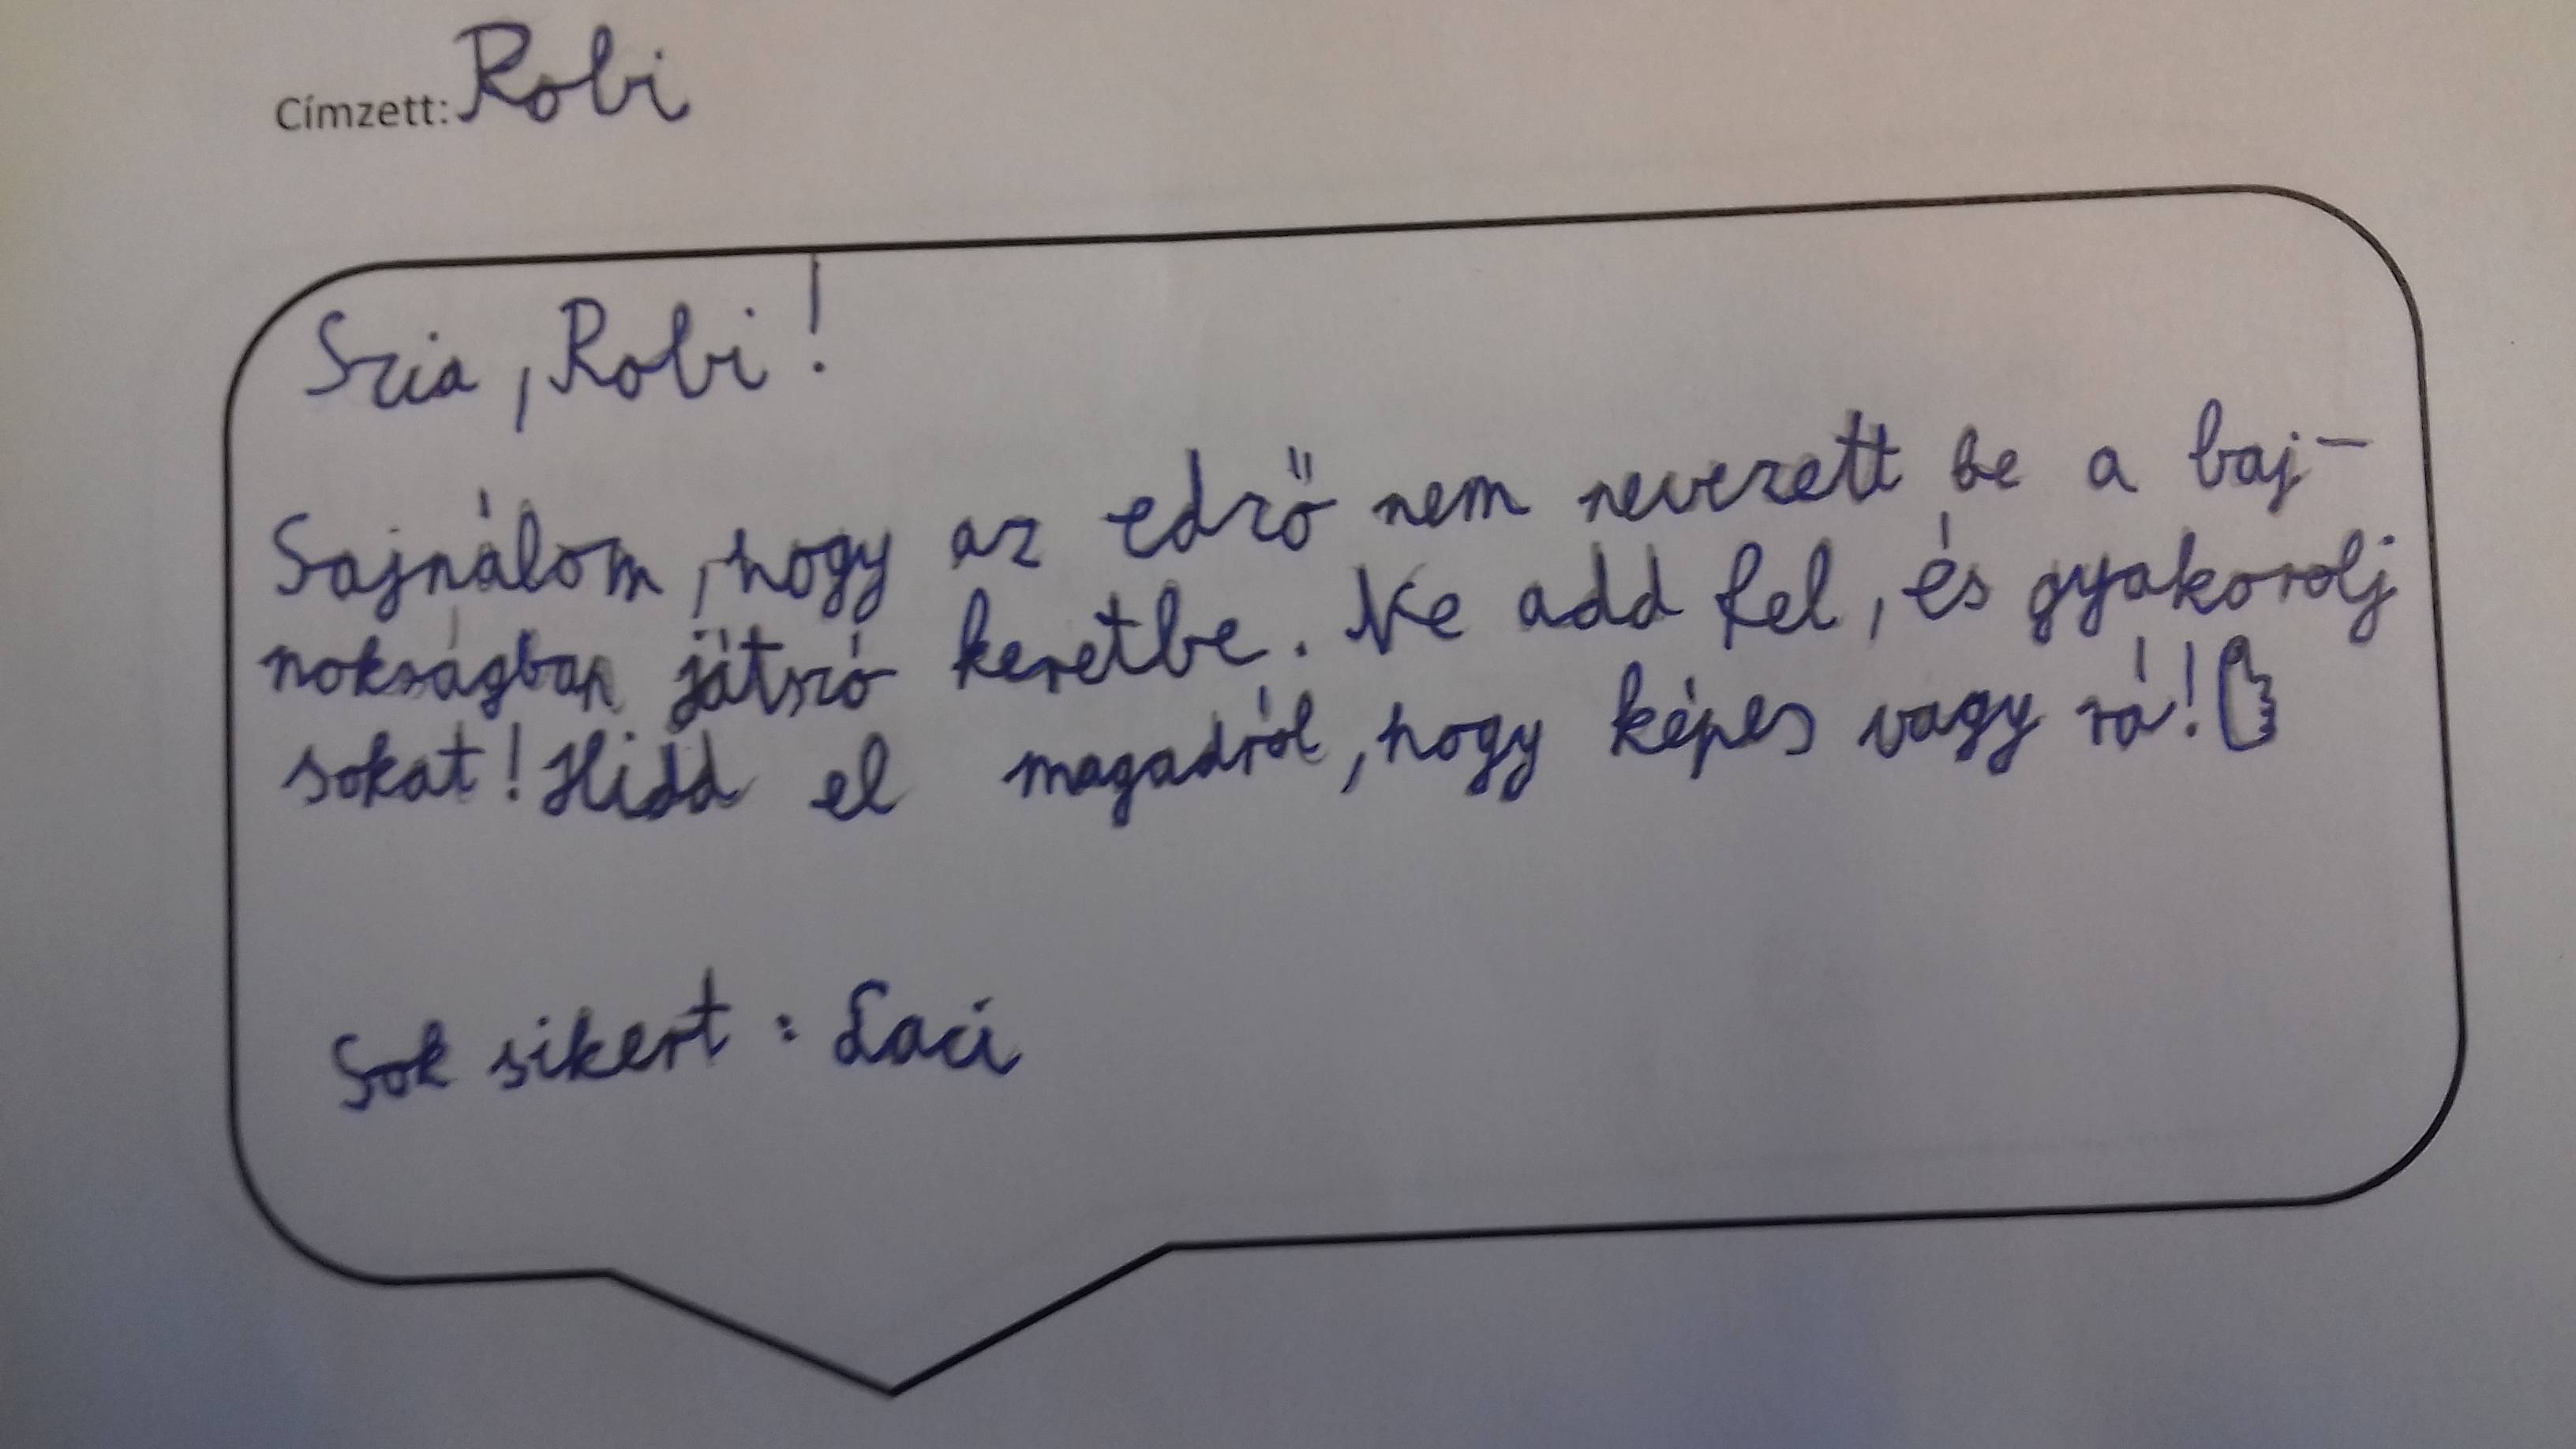 Címzett: Robi
Szia, Robi!
Sajnálom, hogy az edző nem nevezett be a baj-
nokságban játszó keretbe. Ne add fel, és gyakorolj
sokat! Hidd el magadról, hogy képes vagy rá!
Sok sikert: Laci